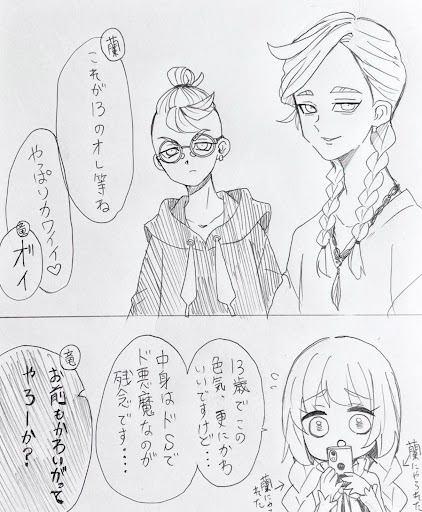 蘭
これが13のオレ等ね
やっぱりカワイイ♡
竜
オイ
13歳でこの
色気、更にかわ
いいですけど…
中身はドSで
ド悪魔なのが
残念です…
竜
お前もかわいがって
やろーか？
蘭にやられた
蘭にやられた